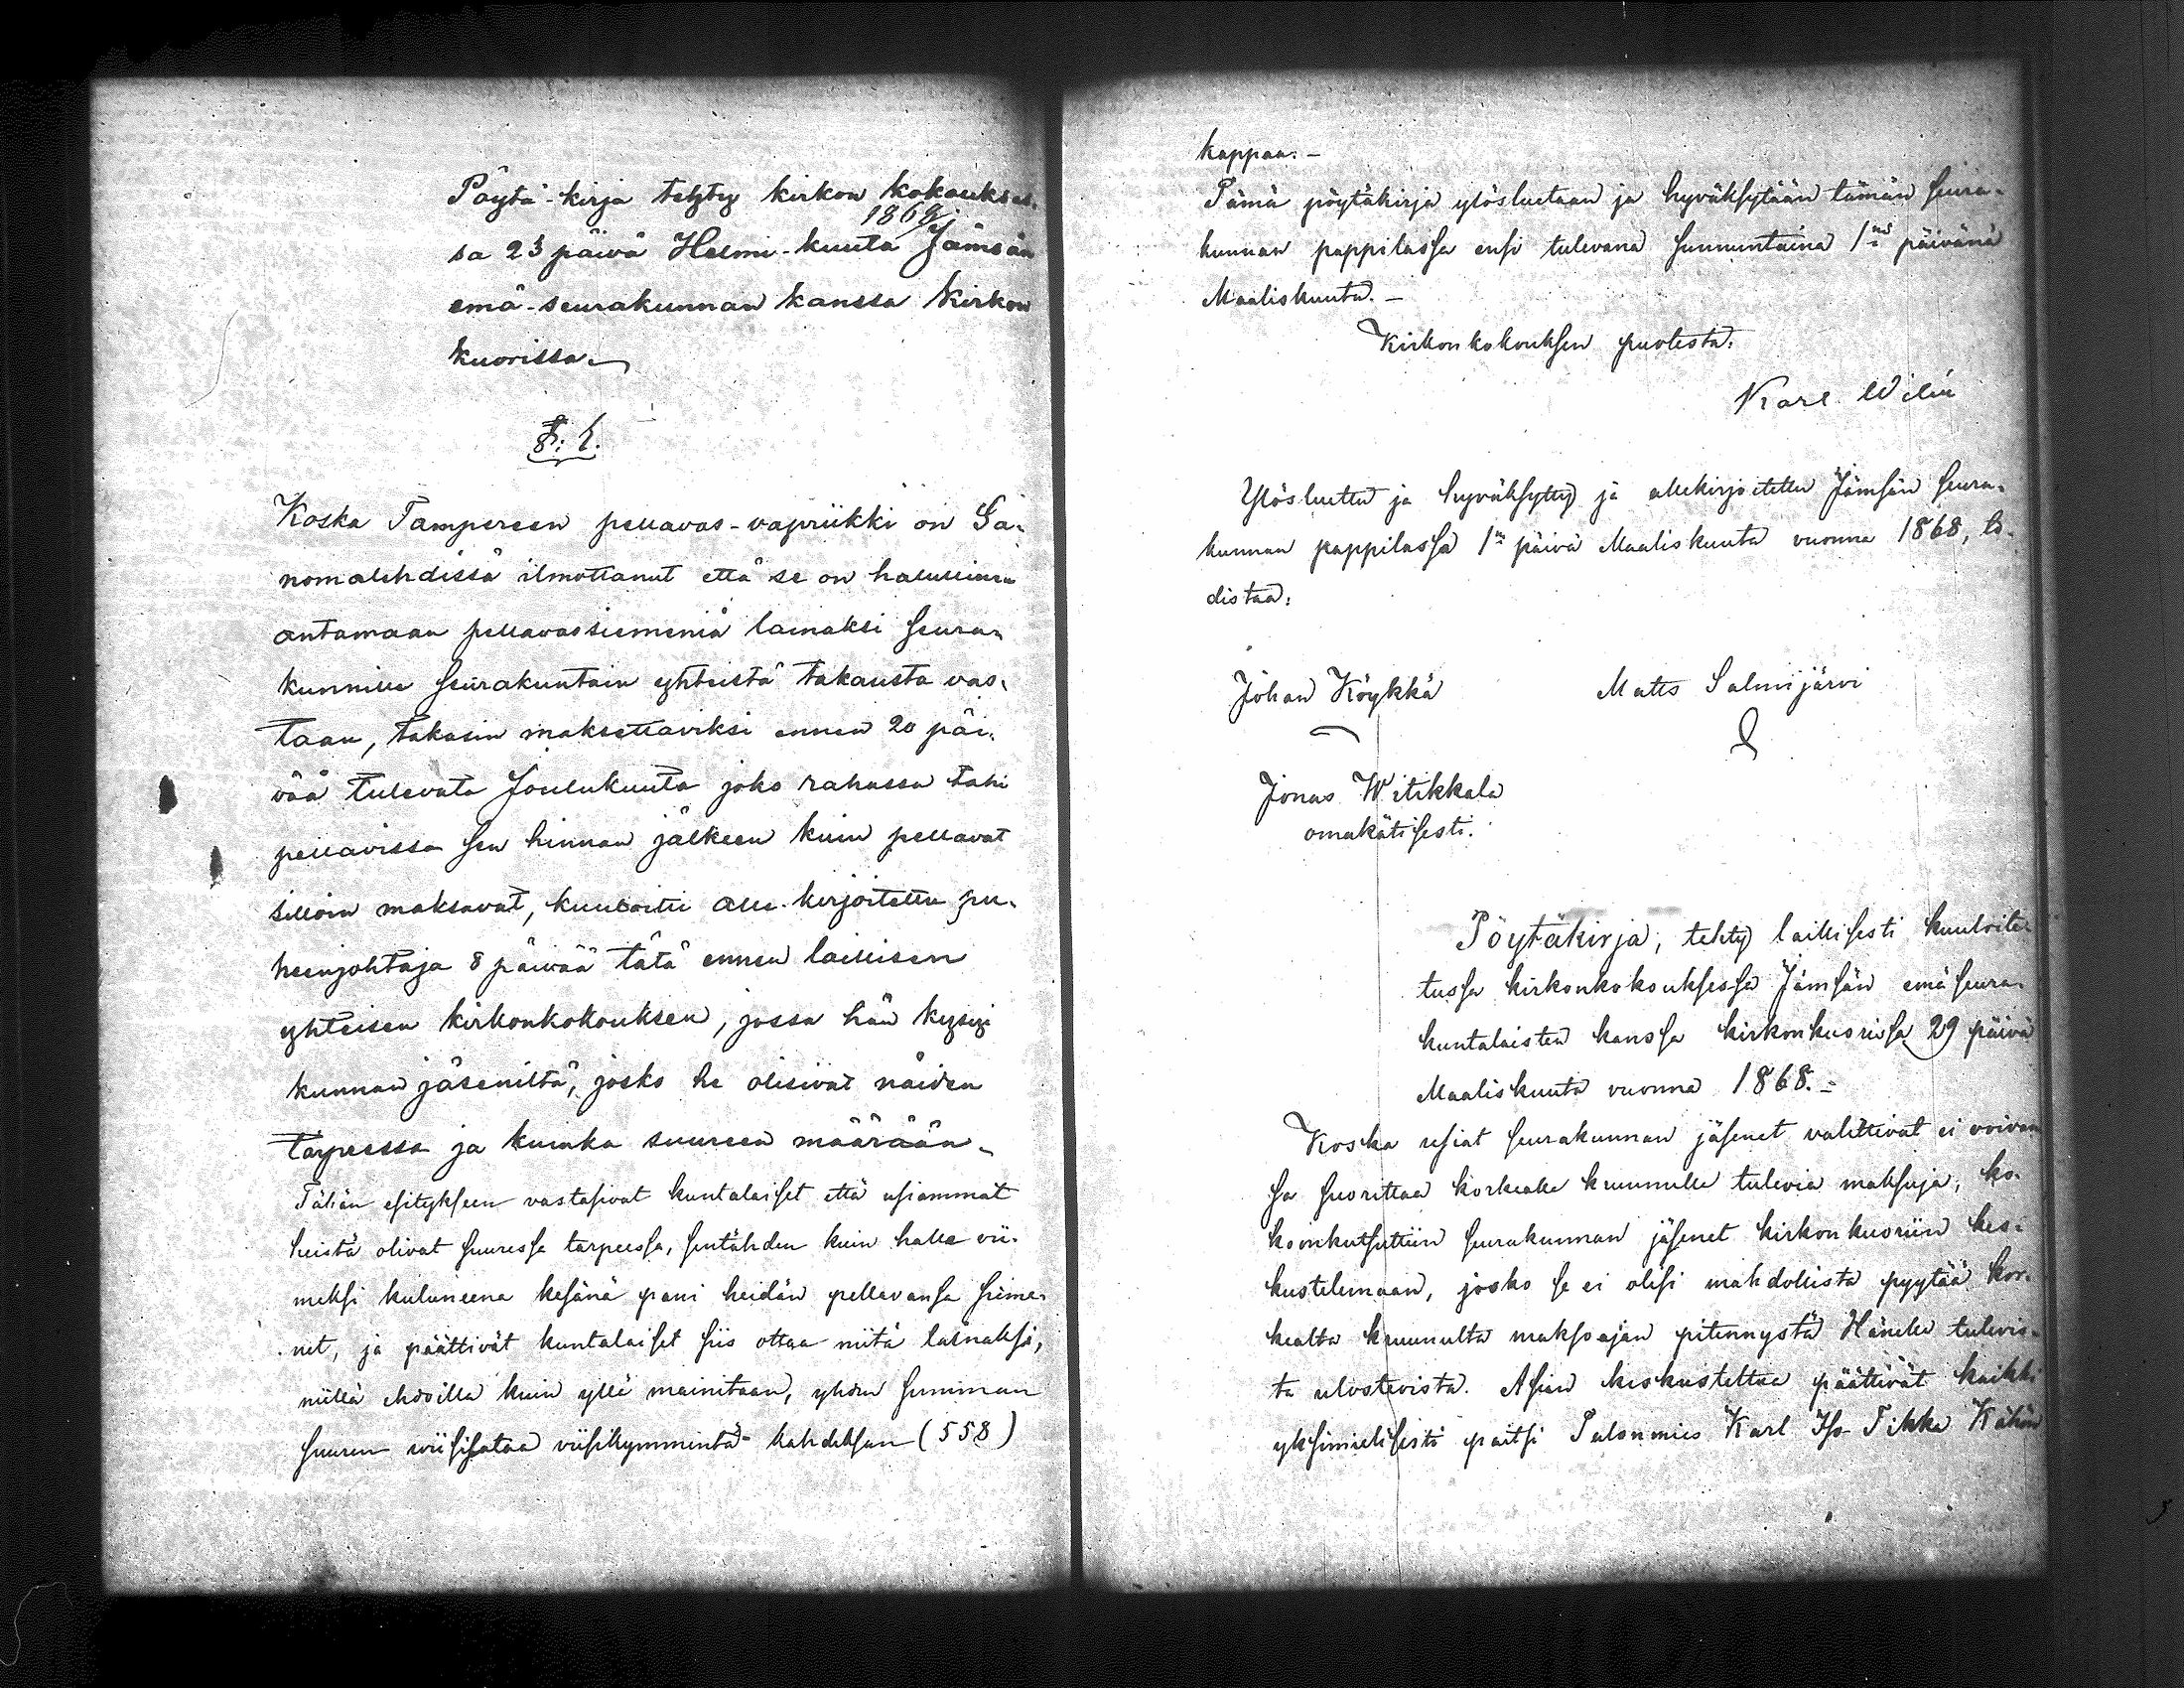 Pöytä-kirja tehty kirkon kokoukses-
1868
sa 23 päivä Helmi-kuuta Jämsän
emä-seurakunnan kanssa Kirkon
kuorissa.
§. 1.
Koska Tampereen pellavas-vapriikki on Sa-
nomalehdissä ilmottanut että se on halullinen
antamaan pellavassiemeniä lainaksi seura-
kunnille seurakuntain yhteistä takausta vas-
taan, takasin maksettaviksi ennen 20 päi-
vää tulevata Joulukuuta joko rahassa tahi
pellavissa sen hinnan jälkeen kuin pellavat
silloin maksavat, kuuloitti alle-kirjoitettu pu-
heenjohtaja 8 päivää tätä ennen laillisen
yhteisen kirkonkokouksen, jossa hän kysyi
kunnan jäseniltä, josko he olisivat näiden
tarpeessa ja kuinka suureen määrään.
Tähän esitykseen vastasivat kuntalaiset että usiammat
heistä olivat suuressa tarpeessa, sentähden kuin halla vii-
meksi kuluneena kesänä pani heidän pellavansa sieme-
net, ja päättivät kuntalaiset siis ottaa niitä lainaksi,
niillä ehdoilla kuin yllä mainitaan, yhden summan
suuren wiisisataa viisikymmentä-kahdeksan (558)
kappaa.-
Tämä pöytäkirja ylösluetaan ja hyväksytään tämän seura-
kunnan pappilassa ensi tulevana sunnuntaina 1nä päivänä
Maaliskuuta.-
Kirkonkokouksen puolesta.
Karl Wilén
Ylösluettu ja hyväksytty ja allekirjoitettu Jämsän seura-
kunnan pappilassa 1n päivä Maaliskuuta vuonna 1868, to-
distaa:
Johan Köykkä Matts Salmijärvi
Jonas Witikkala
omakätisesti.
Pöytäkirja, tehty laillisesti kuuloite-
tussa kirkonkokouksessa Jämsän emäseura-
kuntalaisten kanssa kirkonkuorissa 29 päivä
Maaliskuuta vuonna 1868.-
Koska usiat seurakunnan jäsenet valittivat ei voivan-
sa suorittaa korkealle kruunulle tulevia maksuja, ko-
koonkutsuttiin seurakunnan jäsenet kirkonkuoriin kes-
kustelemaan, josko se ei olisi mahdollista pyytää kor-
kealta kruunulta maksoajan pitennystä Hänelle tulevis-
ta ulosteoista. Asian keskusteltua päättivät kaikki
yksimielisesti paitsi Talonmies Karl Tikka